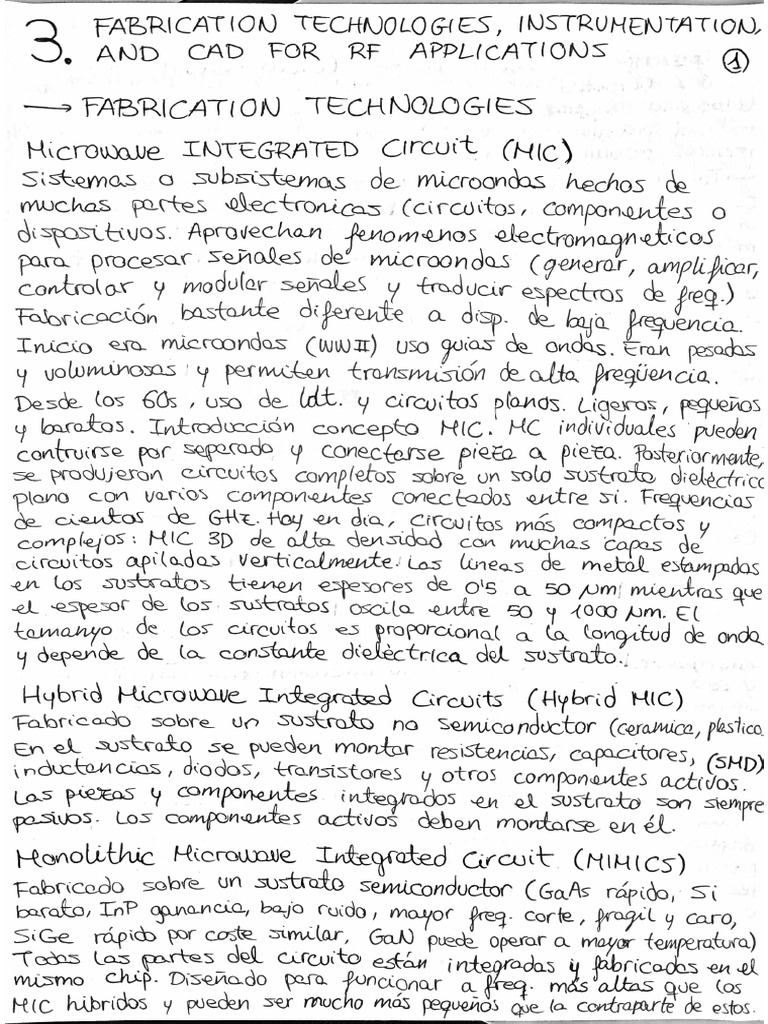 3. FABRICATION TECHNOLOGIES, INSTRUMENTATION,
AND CAD FOR RF APPLICATIONS 1
→ FABRICATION TECHNOLOGIES
Microwave INTEGRATED Circuit (MIC)
Sistemas o subsistemas de microondas hechos de
muchas partes electronicas (circuitos, componentes o
dispositivos. Aprovechan fenomenos electromagneticos
para procesar señales de microondas (generar, amplificar,
controlar y modular señales y traducir espectros de freq.)
Fabricación bastante diferente a disp. de baja frequencia.
Inicio era microondas (WWII) uso guias de ondas. Eran pesadas
y voluminosas y permiten transmisión de alta freqüencia.
Desde los 60s, uso de ldt. y circuitos planos. Ligeros, pequeños
y baratos. Introducción concepto MIC. MC individuales pueden
contruirse por separado y conectarse pieza a pieza. Posteriormente,
se produjeron circuitos completos sobre un solo sustrato dieléctrico
plano con varios componentes conectados entre si. Frequencias
de cientos de GHz. Hoy en dia, circuitos más compactos y
complejos: MIC 3D de alta densidad con muchas capas de
circuitos apiladas verticalmente. Las lineas de metal estampadas
en los sustratos tienen espesores de 0'5 a 50 µm mientras que
el espesor de los sustratos oscila entre 50 y 1000 µm. El
tamanyo de los circuitos es proporcional a la longitud de onda
y depende de la constante dieléctrica del sustrato.
Hybrid Microwave Integrated Circuits (Hybrid MIC)
Fabricado sobre un sustrato no semiconductor (ceramica, plastico
En el sustrato se pueden montar resistencias, capacitores, (SMD)
inductancias, diodos, transistores y otros componentes activos.
Las piezas y componentes integrados en el sustrato son siempre
pasivos. Los componentes activos deben montarse en él.
Monolithic Microwave Integrated Circuit (MIMICS)
Fabricado sobre un sustrato semiconductor (GaAs rápido, Si
barato, InP ganancia, bajo ruido, mayor freq. corte, fragil y caro,
SiGe rápido por coste similar, GaN puede operar a mayor temperatura)
Todas las partes del circuito están integradas y fabricadas en el
mismo chip. Diseñado para funcionar a freq. más altas que los
MIC hibridos y pueden ser mucho más pequeños que la contraparte de estos.